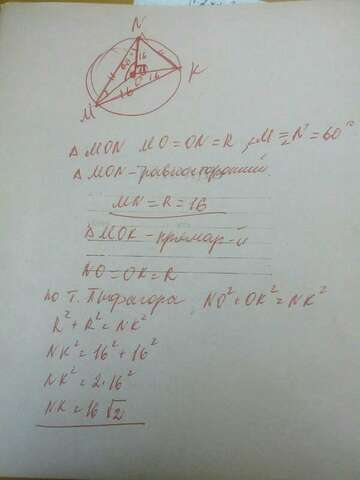 N
60° 16
K
O
16 16
M
△ MON MO = ON = R ∠M = ∠N = 60°
△ MON - равносторонний
MN = R = 16
△ MOK - прямоуг-й
NO = OK = R
по т. Пифагора, NO² + OK² = NK²
R² + R² = NK²
NK² = 16² + 16²
NK² = 2 · 16²
NK = 16 √2